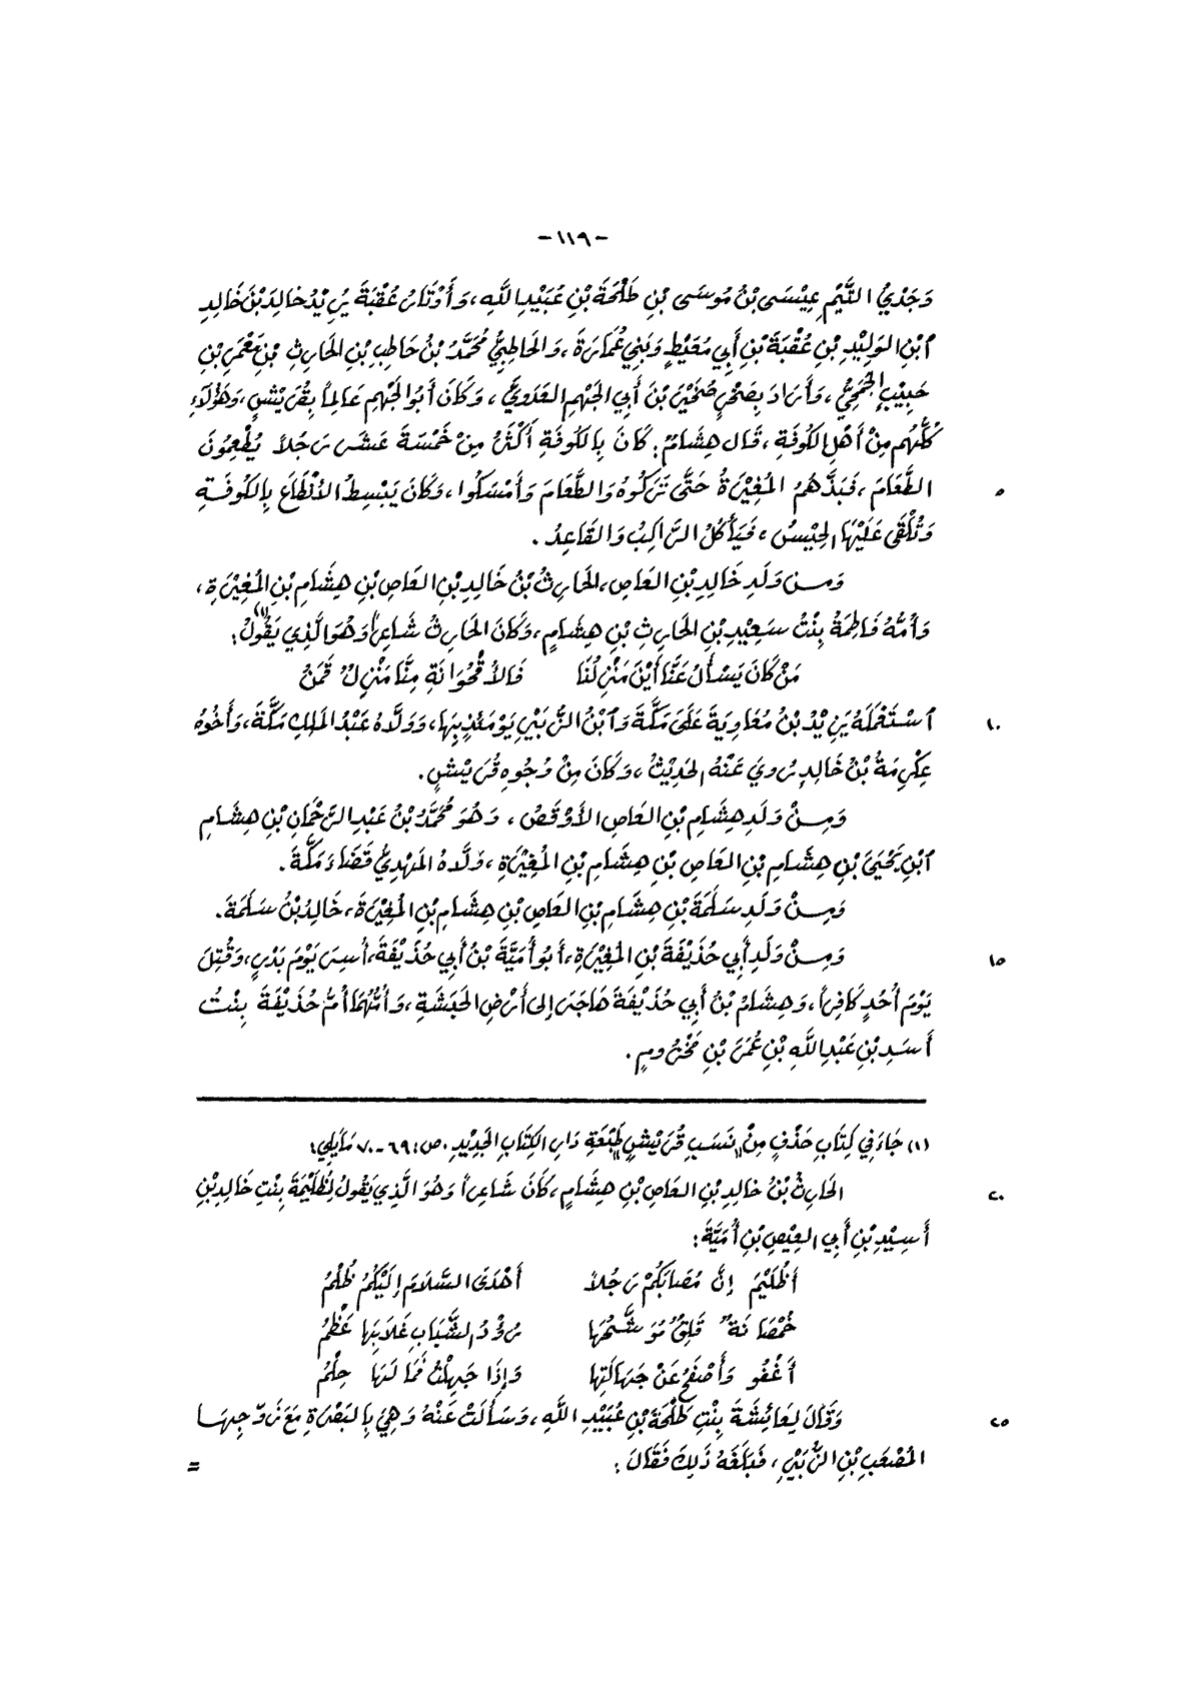 -١١٩-
وَجَدْيُ التَّيْمِ عِيْسَى بْنُ مُوسَى بْنِ طَلْحَةَ بْنِ عُبَيْدِ اللَّهِ، وَأَوْتَارُ عُقْبَةَ يُرِيْدُ خَالِدَ بْنَ خَالِدِ
ٱبْنِ الوَلِيْدِ بْنِ عُقْبَةَ بْنِ أَبِي مُعَيْطٍ وَبَنِي عُمَارَةَ، وَالحَاطِبِيُّ مُحَمَّدُ بْنُ حَاطِبِ بْنِ الحَارِثِ بْنِ مَعْمَرِ بْنِ
حَبِيْبٍ الجُمَحِيُّ، وَأَرَادَ بِصَخْرٍ صُخَيْرَ بْنَ أَبِي الجَهْمِ العَدَوِيَّ، وَكَانَ أَبُو الجَهْمِ عَالِماً بِقُرَيْشٍ، وَهَؤُلَاءِ
كُلُّهُم مِنْ أَهْلِ الكُوفَةِ، قَالَ هِشَامٌ: كَانَ بِالكُوفَةِ أَكْثَرُ مِنْ خَمْسَةَ عَشَرَ رَجُلاً يُطْعِمُونَ
الطَّعَامَ، فَبَذَّهُمُ المُغِيْرَةُ حَتَّى تَرَكُوهُ وَالطَّعَامَ وَأَمْسَكُوا، وَكَانَ يَبْسِطُ الأَنْطَاعَ بِالكُوفَةِ ٥
وَتُلْقَى عَلَيْهَا الحِيْسُ، فَيَأْكُلُ الرَّاكِبُ وَالقَاعِدُ.
وَمِنْ وَلَدِ خَالِدِ بْنِ العَاصِ، الحَارِثُ بْنُ خَالِدِ بْنِ العَاصِ بْنِ هِشَامِ بْنِ المُغِيْرَةِ،
وَأُمُّهُ فَاطِمَةُ بِنْتُ سَعِيْدِ بْنِ الحَارِثِ بْنِ هِشَامٍ، وَكَانَ الحَارِثُ شَاعِراً وَهُوَ الَّذِي يَقُولُ(١):
مَنْ كَانَ يَسْأَلُ عَنَّا أَيْنَ مَنْزِلُنَا فَالأُقْحُوَانَةِ مِنَّا مَنْزِلٌ قَمَنُ
ٱسْتَعْمَلَهُ يَزِيْدُ بْنُ مُعَاوِيَةَ عَلَى مَكَّةَ وَٱبْنُ الزُّبَيْرِ يَوْمَئِذٍ بِهَا، وَوَلَّاهُ عَبْدُ المَلِكِ مَكَّةَ، وَأَخُوهُ ١٠
عِكْرِمَةُ بْنُ خَالِدٍ رُوِيَ عَنْهُ الحَدِيْثُ، وَكَانَ مِنْ وُجُوهِ قُرَيْشٍ.
وَمِنْ وَلَدِ هِشَامِ بْنِ العَاصِ الأَوْقَصُ، وَهُوَ مُحَمَّدُ بْنُ عَبْدِ الرَّحْمَانِ بْنِ هِشَامِ
ٱبْنِ يَحْيَى بْنِ هِشَامِ بْنِ العَاصِ بْنِ هِشَامِ بْنِ المُغِيْرَةِ، وَلَّاهُ المَهْدِيُّ قَضَاءَ مَكَّةَ.
وَمِنْ وَلَدِ سَلَمَةَ بْنِ هِشَامِ بْنِ العَاصِ بْنِ هِشَامِ بْنِ المُغِيْرَةِ، خَالِدُ بْنُ سَلَمَةَ.
وَمِنْ وَلَدِ أَبِي حُذَيْفَةَ بْنِ المُغِيْرَةِ، أَبُو أُمَيَّةَ بْنُ أَبِي حُذَيْفَةَ، أُسِرَ يَوْمَ بَدْرٍ، وَقُتِلَ ١٥
يَوْمَ أُحُدٍ كَافِراً، وَهِشَامُ بْنُ أَبِي حُذَيْفَةَ هَاجَرَ إلى أَرْضِ الحَبَشَةِ، وَأُمُّهُمَا أُمُّ حُذَيْفَةَ بِنْتُ
أَسَدِ بْنِ عَبْدِ اللَّهِ بْنِ عُمَرَ بْنِ مَخْزُومٍ.
(١) جَاءَ فِي كِتَابِ حَذْفٍ مِنْ نَسَبِ قُرَيْشٍ طَبْعَةِ دَارِ الكِتَابِ الجَدِيْدِ. ص: ٦٩-٧٠ مَايَلِي:
الحَارِثُ بْنُ خَالِدِ بْنِ العَاصِ بْنِ هِشَامٍ، كَانَ شَاعِراً وَهُوَ الَّذِي يَقُولُ لِظُلَيْمَةَ بِنْتِ خَالِدِ بْنِ ٢٠
أَسِيْدِ بْنِ أَبِي العِيْصِ بْنِ أُمَيَّةَ:
أَظُلَيْمَ إِنَّ مُصَابَكُمْ رَجُلاً أَهْدَى السَّلَامَ إِلَيْكُمُ ظُلْمُ
خُمْصَانَةٌ قَلِقٌ مُوَشَّحُهَا رُؤْدُ الشَّبَابِ غَلَابِهَا عَظْمُ
أَغْفُو وَأَصْفَحُ عَنْ جَهَالَتِهَا وَإِذَا جَهِلْتُ فَمَا لَهَا حِلْمُ
وَقَالَ لِعَائِشَةَ بِنْتِ طَلْحَةَ بْنِ عُبَيْدِ اللَّهِ، وَسَأَلَتْ عَنْهُ وَهِيَ بِالبَصْرَةِ مَعَ زَوْجِهَا ٢٥
المُصْعَبِ بْنِ الزُّبَيْرِ، فَبَلَغَهُ ذَلِكَ فَقَالَ: =